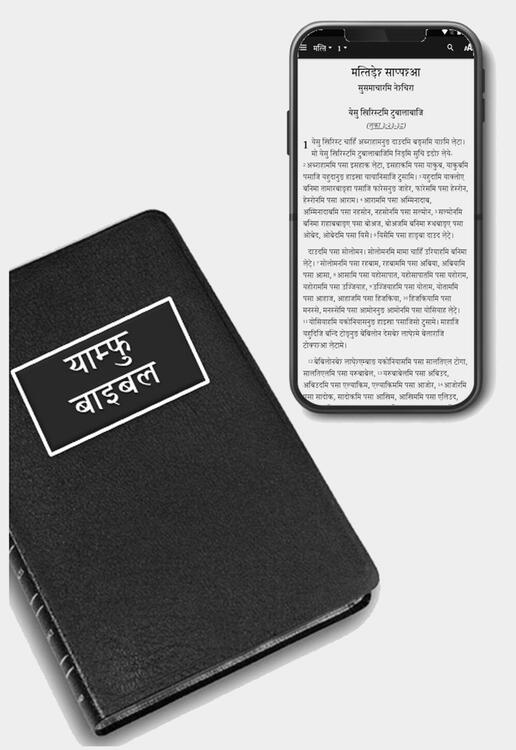 याम्फु
बाइबल
मत्ति 1
मत्तिड़ेʔ साप्पʔआ
सुसमाचारमि नेʔचिरा
येसु ख्रिस्टमि टुबालाबाजि
(लुका 3:23-38)
1 येसु ख्रिस्ट चाहिँ अब्राहामनुङ दाउदमि बङ्समि याःमि लेःटा।
मो येसु ख्रिस्टमि टुबालाबाजिमि निङ्मि सुचि इङोʔ लेये-
2 अब्राहाममि पसा इसहाक लेःटा, इसहाकमि पसा याकुब, याकुबमि
पसाजि यहुदानुङ हाङचा यापानिसाजि टुसामि। 3 यहुदामि याक्लोए
बनिमा तामारबाङ्हा पसाजि फारेसनुङ जाहेर, फारेसमि पसा हेस्रोन,
हेस्रोनमि पसा आराम। 4 आराममि पसा अम्मिनादाब,
अम्मिनादाबमि पसा नहसोन, नहसोनमि पसा सल्मोन, 5 सल्मोनमि
बनिमा राहाबबाङ्ए पसा बोअज, बोअजमि बनिमा रुथबाङ्ए पसा
ओबेद, ओबेदमि पसा यिसै। 6 यिसैमि पसा हाङ्बा दाउद लेःटे।
दाउदमि पसा सोलोमन। सोलोमनमि मामा चाहिँ उरियाहमि बनिमा
लेःटे। 7 सोलोमनमि पसा रहबाम, रहबाममि पसा अबिया, अबियामि
पसा आसा, 8 आसामि पसा यहोसापात, यहोसापातमि पसा यहोराम,
यहोराममि पसा उज्जियाह, 9 उज्जियाहमि पसा योताम, योताममि
पसा आहाज, आहाजमि पसा हिजकिया, 10 हिजकियामि पसा
मनस्से, मनस्सेमि पसा आमोननुङ आमोनमि पसा योसियाह लेःटे।
11 योसियाहमि यकोनियासनुङ हाङचा पसाजिसो टुसामे। माहाजि
यहुदिजि बन्दि टोङ्नुङ बेबिलोन देसबेʔ लाप्पेःमे बेलाराजि
टोक्पाआ लेःटामे।
12 बेबिलोनबेʔ लाप्पेःएम्बाङ यकोनियासमि पसा सालतिएल टोगा,
सालतिएलमि पसा यरुबाबेल, 13 यरुबाबेलमि पसा अबिउद,
अबिउदमि पसा एल्याकिम, एल्याकिममि पसा आजोर, 14 आजोरमि
पसा सादोक, सादोकमि पसा आखिम, आखिममि पसा एलिउद,